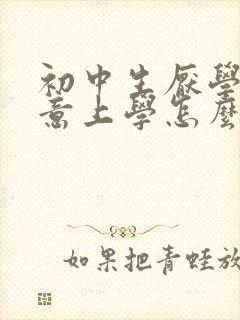 初中生厭學
意上學怎麼
如果把青蛙放